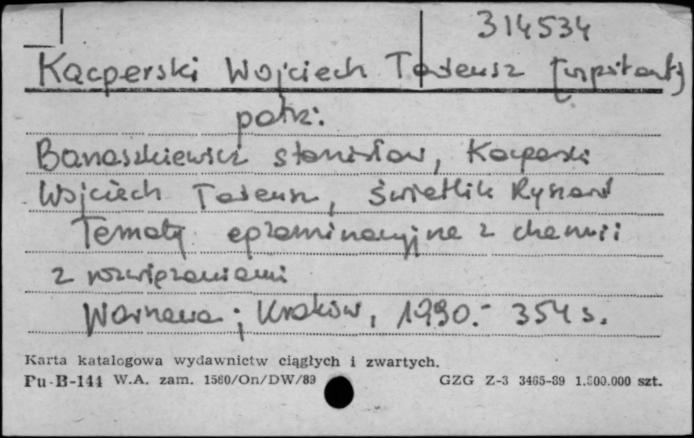 314534
Kacperski Wojciech Tadeusz [współaut.]
patrz:
Banaszkiewicz Stanisław, Kacperski
Wojciech Tadeusz, Świetlik Ryszard
Tematy egzaminacyjne z chemii
z rozwiązaniami
Warszawa; Kraków, 1990.- 354 s.
Karta katalogowa wydawnictw ciągłych i zwartych.
Pu-B-144 W.A. zam. 1560/On/DW/89 GZG Z-3 3465-89 1.500.000 szt.